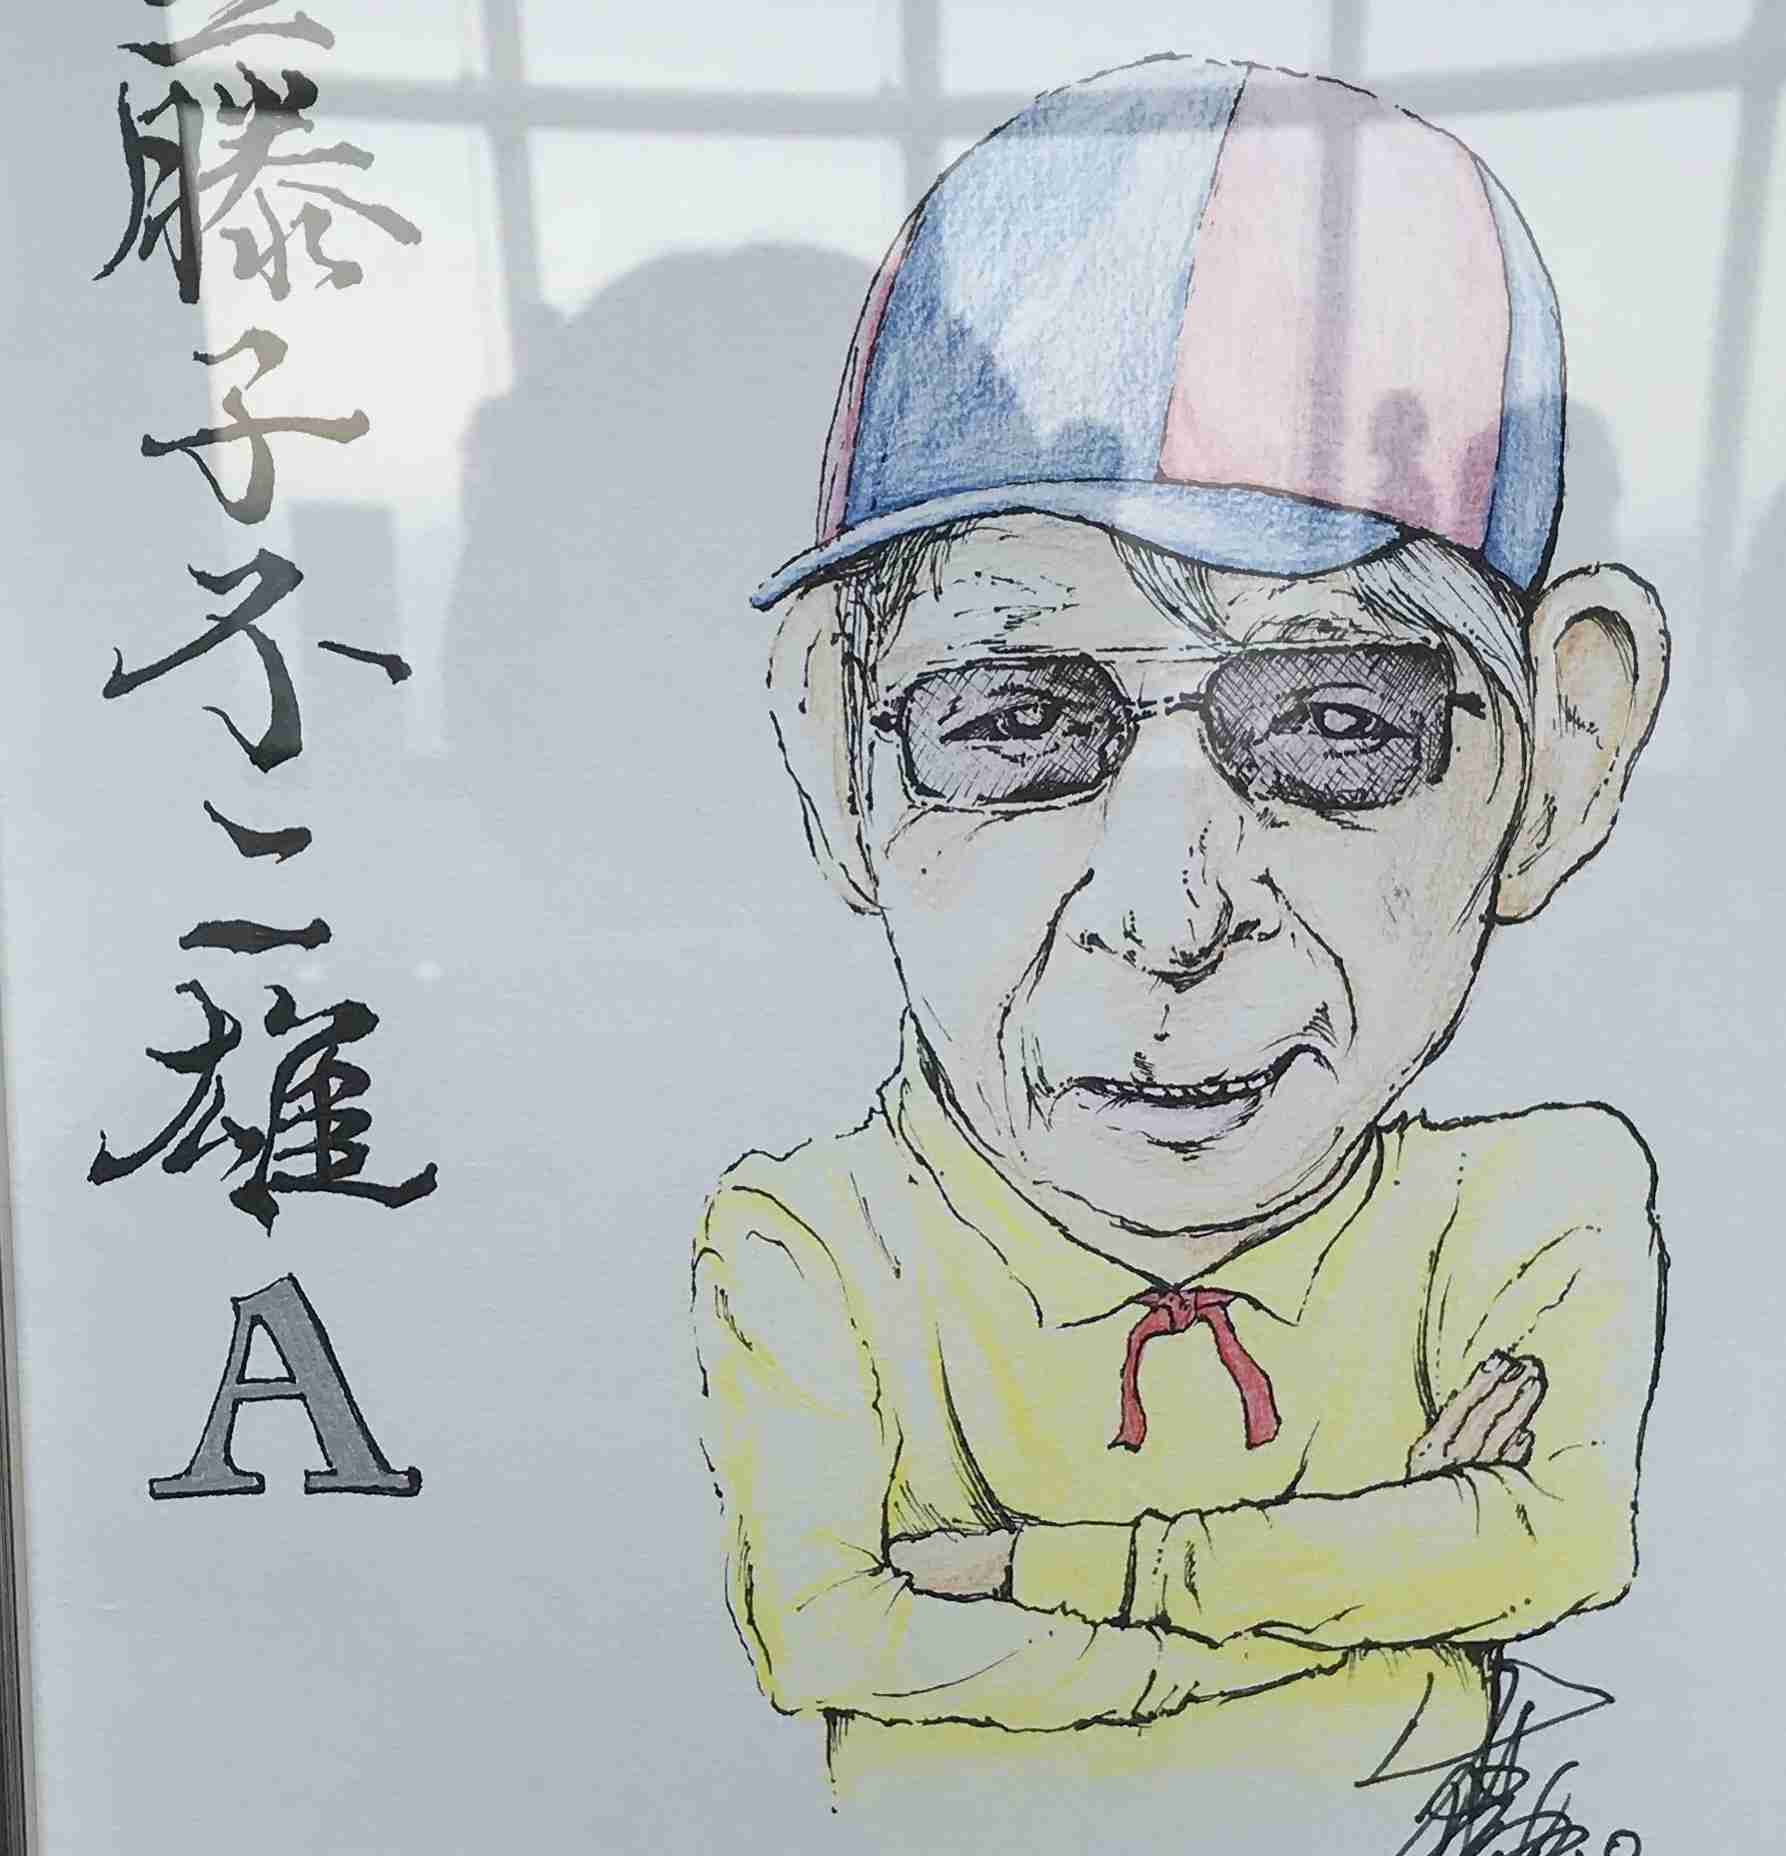 藤子不二雄A